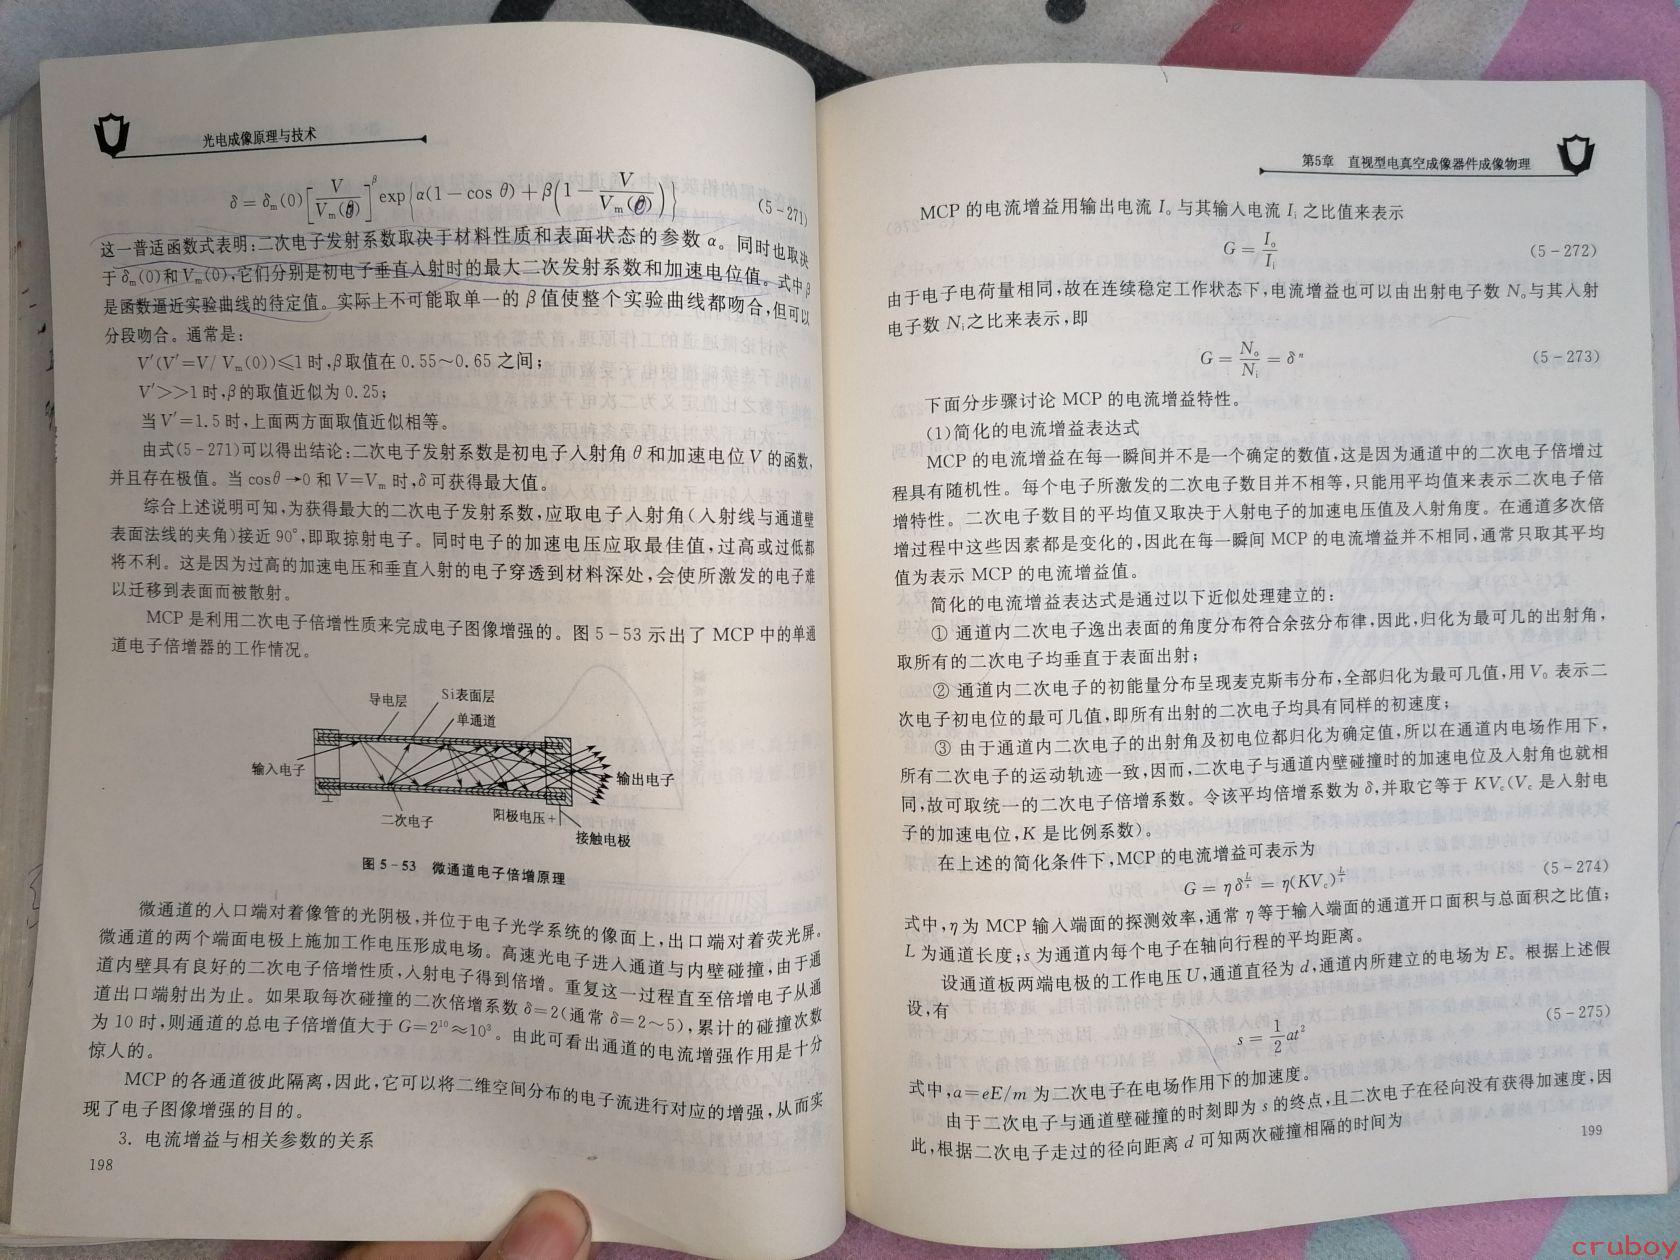 光电成像原理与技术
δ = δm(0)[V/Vm(θ)]^β exp{α(1-cos θ)+β(1-V/Vm(θ))}
(5-271)
这一普适函数式表明:二次电子发射系数取决于材料性质和表面状态的参数 α。同时也取决
于 δm(0)和 Vm(0),它们分别是初电子垂直入射时的最大二次发射系数和加速电位值。式中 β
是函数逼近实验曲线的待定值。实际上不可能取单一的 β 值使整个实验曲线都吻合,但可以
分段吻合。通常是:
V′(V′=V/ Vm(0))≤1 时,β取值在 0.55~0.65 之间;
V′>>1 时,β的取值近似为 0.25;
当 V′=1.5 时,上面两方面取值近似相等。
由式(5-271)可以得出结论:二次电子发射系数是初电子入射角 θ 和加速电位 V 的函数,
并且存在极值。当 cosθ→0 和 V=Vm 时,δ 可获得最大值。
综合上述说明可知,为获得最大的二次电子发射系数,应取电子入射角(入射线与通道壁
表面法线的夹角)接近 90°,即取掠射电子。同时电子的加速电压应取最佳值,过高或过低都
将不利。这是因为过高的加速电压和垂直入射的电子穿透到材料深处,会使所激发的电子难
以迁移到表面而被散射。
MCP 是利用二次电子倍增性质来完成电子图像增强的。图 5-53 示出了 MCP 中的单通
道电子倍增器的工作情况。
导电层
Si表面层
单通道
输入电子
输出电子
二次电子
阳极电压+
接触电极
图 5-53 微通道电子倍增原理
微通道的入口端对着像管的光阴极,并位于电子光学系统的像面上,出口端对着荧光屏。
微通道的两个端面电极上施加工作电压形成电场。高速光电子进入通道与内壁碰撞,由于通
道内壁具有良好的二次电子倍增性质,入射电子得到倍增。重复这一过程直至倍增电子从通
道出口端射出为止。如果取每次碰撞的二次倍增系数 δ=2(通常 δ=2~5),累计的碰撞次数
为 10 时,则通道的总电子倍增值大于 G=2¹⁰≈10³。由此可看出通道的电流增强作用是十分
惊人的。
MCP 的各通道彼此隔离,因此,它可以将二维空间分布的电子流进行对应的增强,从而实
现了电子图像增强的目的。
3. 电流增益与相关参数的关系
198
第5章 直视型电真空成像器件成像物理
MCP 的电流增益用输出电流 Io 与其输入电流 Ii 之比值来表示
G = Io/Ii
(5-272)
由于电子电荷量相同,故在连续稳定工作状态下,电流增益也可以由出射电子数 No与其入射
电子数 Ni之比来表示,即
G = No/Ni = δⁿ
(5-273)
下面分步骤讨论 MCP 的电流增益特性。
(1)简化的电流增益表达式
MCP 的电流增益在每一瞬间并不是一个确定的数值,这是因为通道中的二次电子倍增过
程具有随机性。每个电子所激发的二次电子数目并不相等,只能用平均值来表示二次电子倍
增特性。二次电子数目的平均值又取决于入射电子的加速电压值及入射角度。在通道多次倍
增过程中这些因素都是变化的,因此在每一瞬间 MCP 的电流增益并不相同,通常只取其平均
值为表示 MCP 的电流增益值。
简化的电流增益表达式是通过以下近似处理建立的:
① 通道内二次电子逸出表面的角度分布符合余弦分布律,因此,归化为最可几的出射角,
取所有的二次电子均垂直于表面出射;
② 通道内二次电子的初能量分布呈现麦克斯韦分布,全部归化为最可几值,用 V₀ 表示二
次电子初电位的最可几值,即所有出射的二次电子均具有同样的初速度;
③ 由于通道内二次电子的出射角及初电位都归化为确定值,所以在通道内电场作用下,
所有二次电子的运动轨迹一致,因而,二次电子与通道内壁碰撞时的加速电位及入射角也就相
同,故可取统一的二次电子倍增系数。令该平均倍增系数为 δ,并取它等于 KVc(Vc 是入射电
子的加速电位,K 是比例系数)。
在上述的简化条件下,MCP 的电流增益可表示为
G = ηδ^(L/s) = η(KVc)^(L/s)
(5-274)
式中,η 为 MCP 输入端面的探测效率,通常 η 等于输入端面的通道开口面积与总面积之比值;
L 为通道长度;s 为通道内每个电子在轴向行程的平均距离。
设通道板两端电极的工作电压 U,通道直径为 d,通道内所建立的电场为 E。根据上述假
设,有
s = 1/2 at²
(5-275)
式中,a=eE/m 为二次电子在电场作用下的加速度。
由于二次电子与通道壁碰撞的时刻即为 s 的终点,且二次电子在径向没有获得加速度,因
此,根据二次电子走过的径向距离 d 可知两次碰撞相隔的时间为
199
cruboy